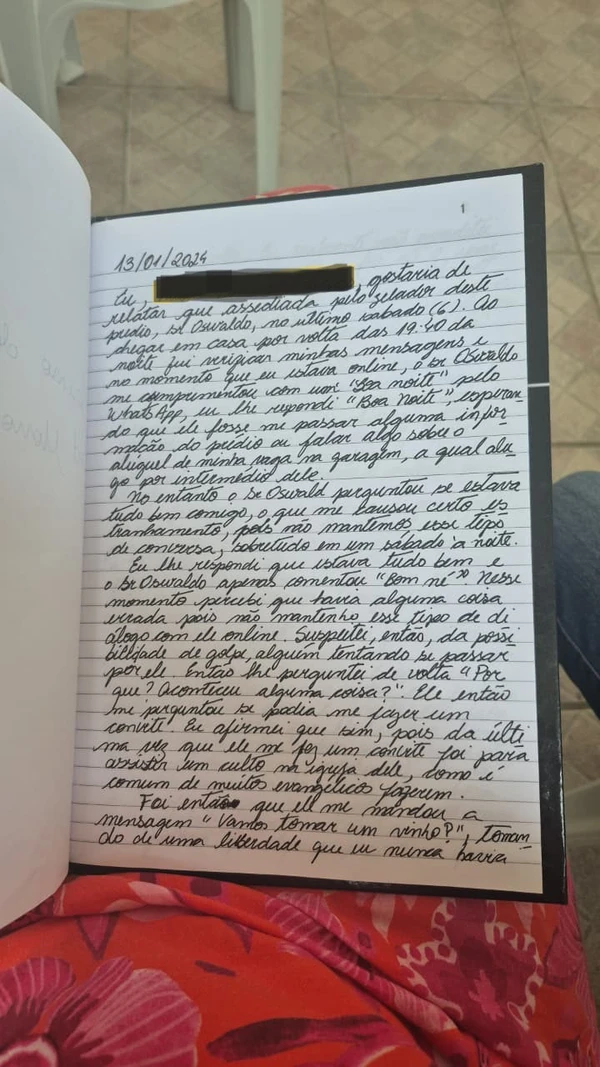 1
13/01/2024
Eu, , gostaria de
relatar que assediada pelo zelador deste
prédio, Sr Oswaldo, no último sábado (6). Ao
chegar em casa por volta das 19:40 da
noite fui verificar minhas mensagens e
no momento que eu estava online, o Sr Oswaldo
me cumprimentou com um "Boa noite" pelo
WhatsApp, eu lhe repondi "Boa Noite", esperan-
do que ele fosse me passar alguma infor-
mação do prédio ou falar algo sobre o
aluguel de minha vaga na garagem, a qual alu-
go por intermédio dele.
No entanto o Sr Oswald perguntou se estava
tudo bem comigo, o que me causou certo es
tranhamento, pois não mantemos esse tipo
de conversa, sobretudo em um sábado à noite.
Eu lhe respondi que estava tudo bem e
o Sr Oswaldo apenas comentou "Bom né". Nesse
momento percebi que havia alguma coisa
errada pois não mantenho esse tipo de di
álogo com ele online. Suspeitei, então, da possi
bilidade de golpe, alguém tentando se passar
por ele. Então lhe perguntei de volta "Por
que? Aconteceu alguma coisa?". Ele então
me perguntou se podia me fazer um
convite. Eu afirmei que sim, pois da últi
ma vez que ele me fez um convite foi para
assistir um culto na igreja dele, como é
comum de muitos evangélicos fazerem.
Foi então que ele me mandou a
mensagem "Vamos tomar um vinho?", toman
do de uma liberdade que eu nunca havia